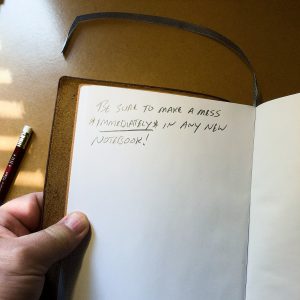 BE SURE TO MAKE A MESS
*IMMEDIATELY* IN ANY NEW
NOTEBOOK!